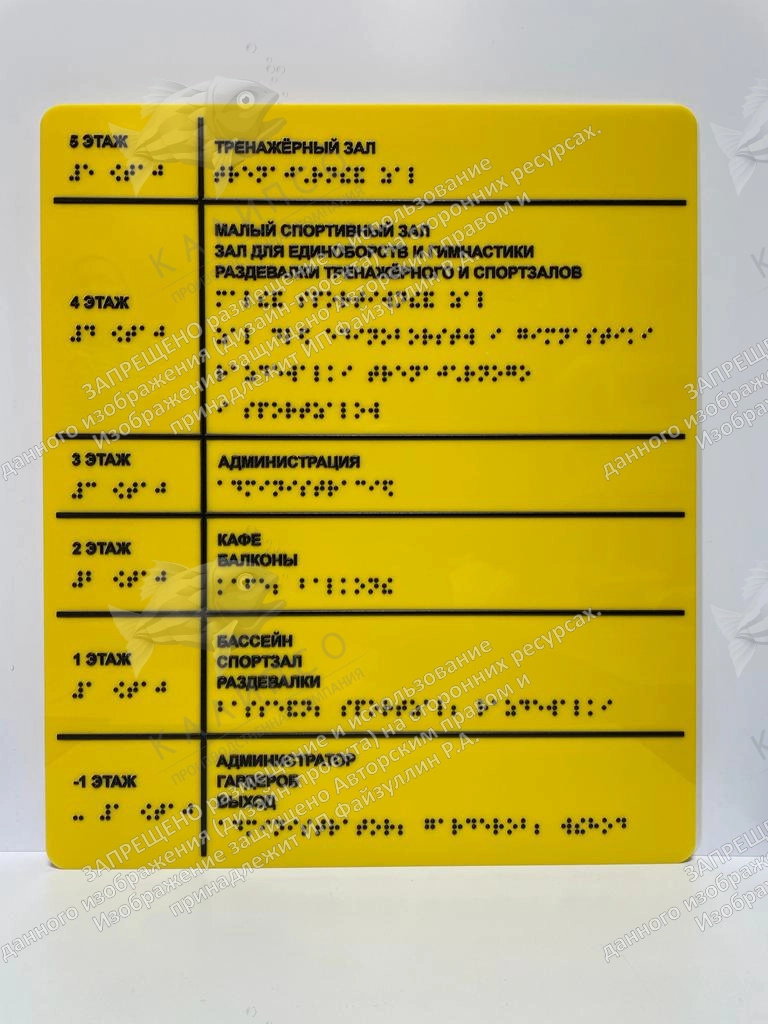 5 ЭТАЖ
ТРЕНАЖЁРНЫЙ ЗАЛ
4 ЭТАЖ
МАЛЫЙ СПОРТИВНЫЙ ЗАЛ
ЗАЛ ДЛЯ ЕДИНОБОРСТВ И ГИМНАСТИКИ
РАЗДЕВАЛКИ ТРЕНАЖЁРНОГО И СПОРТЗАЛОВ
3 ЭТАЖ
АДМИНИСТРАЦИЯ
2 ЭТАЖ
КАФЕ
БАЛКОНЫ
1 ЭТАЖ
БАССЕЙН
СПОРТЗАЛ
РАЗДЕВАЛКИ
-1 ЭТАЖ
АДМИНИСТРАТОР
ГАРДЕРОБ
ВЫХОД
ЗАПРЕЩЕНО размещение и использование
данного изображения (дизайн-проекта) на сторонних ресурсах.
Изображение защищено Авторским правом и
принадлежит ИП Файзуллин Р.Д.
ЗАПРЕЩЕНО размещение и использование
данного изображения (дизайн-проекта) на сторонних ресурсах.
Изображение защищено Авторским правом и
принадлежит ИП Файзуллин Р.Д.
КАЛИПСО
КАЛИПСО